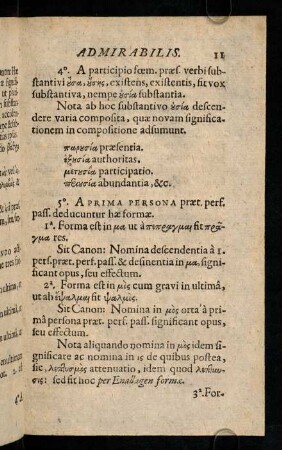 ADMIRABILIS. 11
4°. A participio fœm. præs. verbi sub-
stantivi ȣ̓σα, ȣ̓σης, existens, existentis, sit vox
substantiva, nempe ȣ̓σία substantia.
Nota ab hoc substantivo ȣ̓σία descen-
dere varia composita, quæ novam significa-
tionem in compositione adsumunt.
παρȣσία præsentia.
ἐξȣσία authoritas.
μετȣσία participatio.
abundantia, &c.
5°. A PRIMA PERSONA præt. perf.
pass. deducuntur hæ formæ.
1ª. Forma est in μα ut à πέπραγμαι fit πρᾶ-
γμα res.
Sit Canon: Nomina descendentia à 1.
pers. præt. perf. pass. & desinentia in μα, signifi-
cant opus, seu effectum.
2ª. Forma est in μὸς cum gravi in ultimâ,
ut ab ἔψαλμαι fit ψαλμὸς.
Sit Canon: Nomina in μὸς orta à pri-
mâ persona præt. perf. pass. significant opus,
seu effectum.
Nota aliquando nomina in μὸς idem si-
gnificare ac nomina in is de quibus postea,
sic, attenuatio, idem quod
sed sit hoc per Exallagen formæ.
3ª. For-